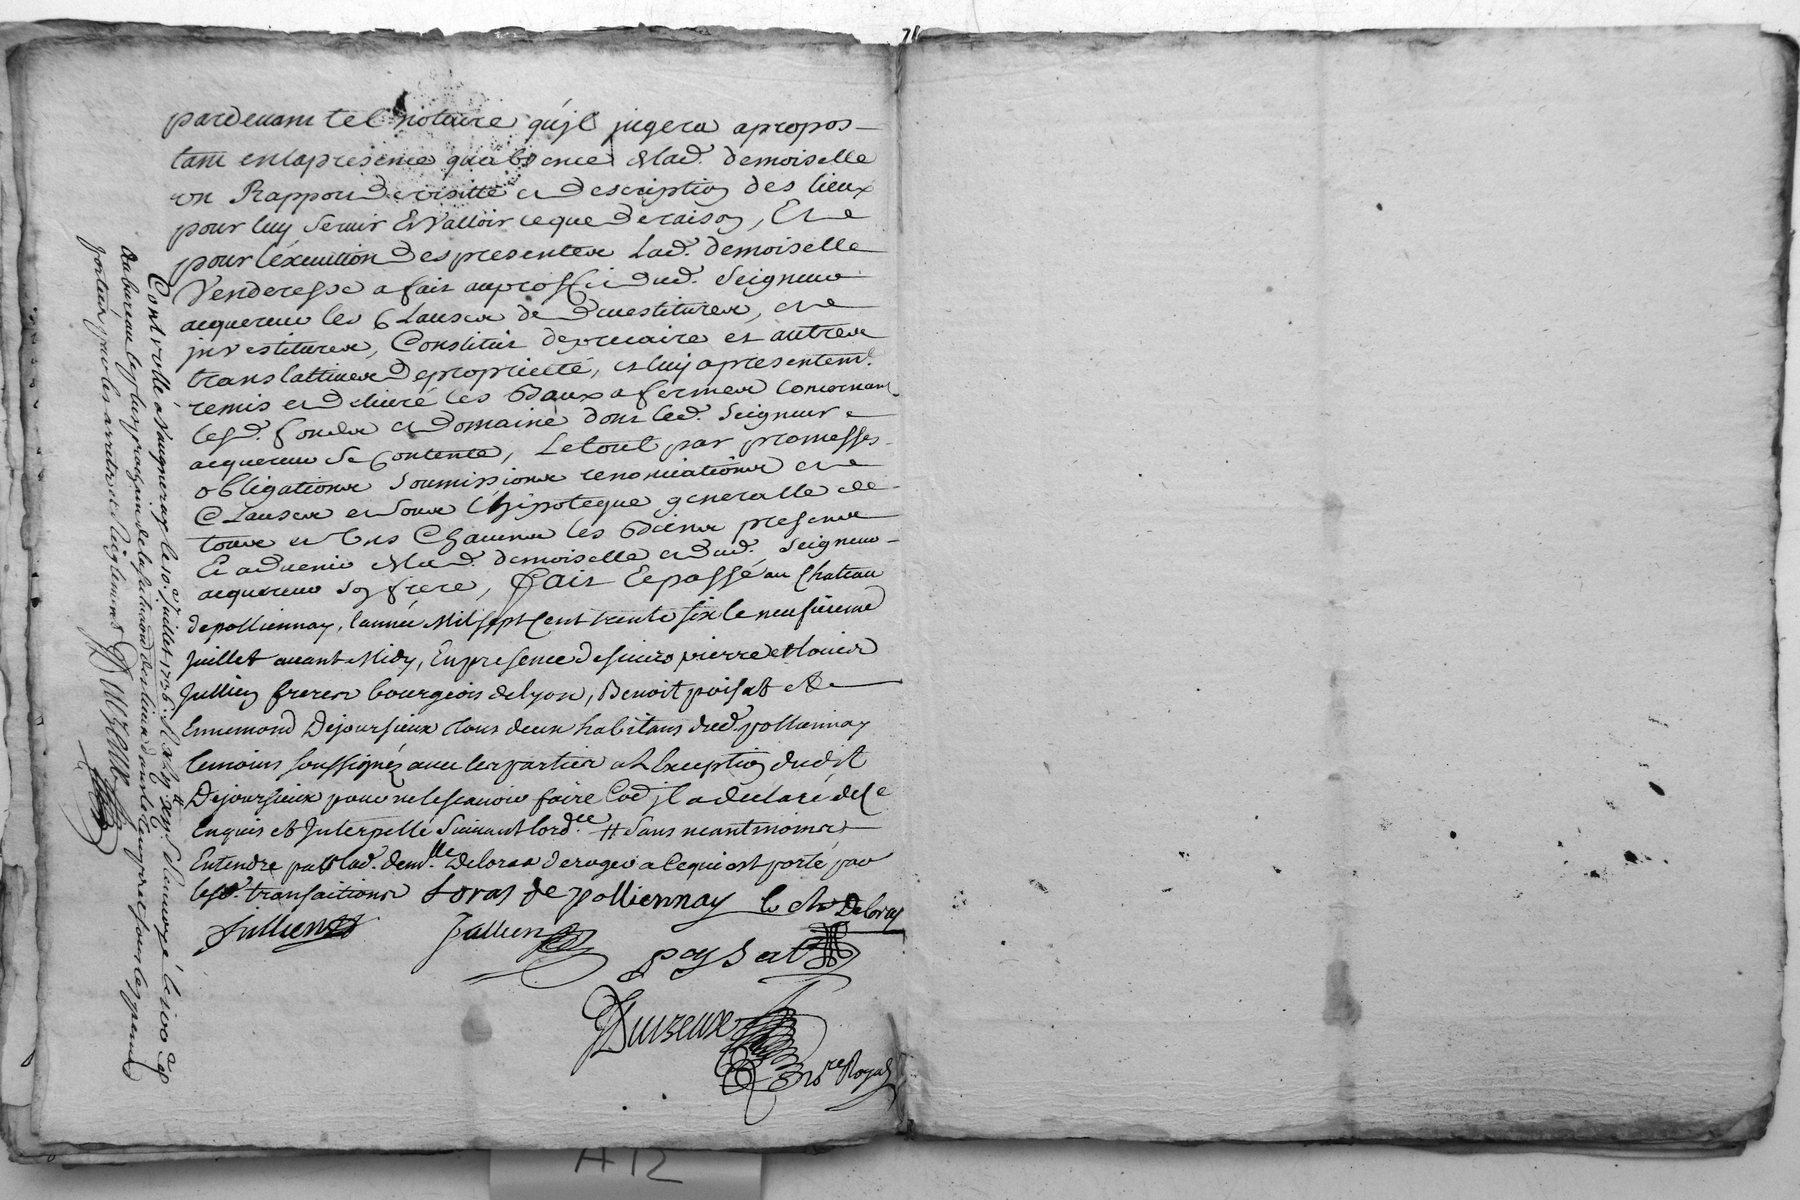 pardevant tel notaire qu'jl jugera apropos
tant enlapresence quabsence de lad. demoiselle
un Rapport de visitte et description des lieux
pour luy servir Et Valloir ceque deraison, Et
pour l'execution des presentes lad. demoiselle
Venderesse a fait auproffit dud. Seigneur
acquereur les Clauses de devestitures, et
jnvestitures, Constitut deprecaire et autres
translatives depropriété, et luy apresentemt.
remis et delivré les Baux afermes concernant
lesd. fonds et domaine dont led. Seigneur
acquereur se Contente, Letout par promesses
obligations soumissions renonciations et
Clauses et sous l'hipoteque generalle de
tous et uns Chacuns les Biens presens
Et advenir de lad. demoiselle et dud. Seigneur
acquereur son frere, fait Et passé au Chateau
de pollionnay, l'année Mil sept Cent trente six le neufvieme
Juillet avant Midy, En presence de sieurs pierre et Louis
Jullien freres bourgeois de lyon, Benoit poisat et
Ennemond Dejoursieux tous deux habitans dud. pollionnay
temoins soussignés avec les parties a L'exception dudit
Dejoursieux pour ne le scavoir faire Co'e jl a declaré de ce
Enquis et Interpellé suivant lordce. # sans neantmoins
Entendre par lad. demlle. Deloras deroger a ce qui est porté par
lesd. transactions Loras de polliennay le cher Deloras
Jullien Jullien
poysat
Duizeux
nore Royal
Controllé à Vaugneray le 10e Juillet 1736. R
au bureau le plus prochain de la situation des lieux dans le temps et sous les peines
portées par les arrets et reglemens Duizeux
71
A 12